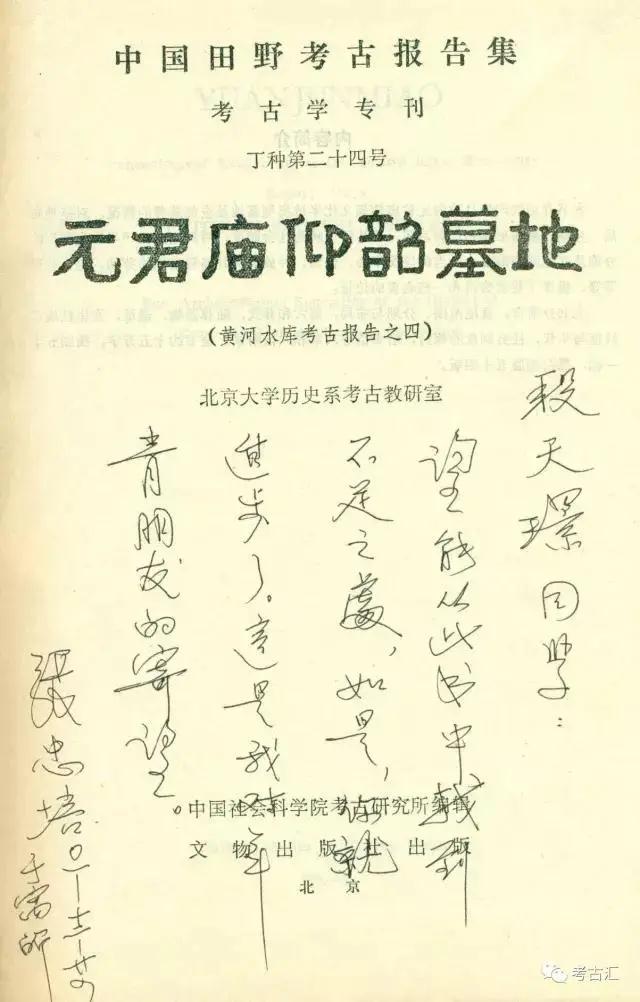 中国田野考古报告集
考古学专刊
丁种第二十四号
元君庙仰韶墓地
(黄河水库考古报告之四)
北京大学历史系考古教研室
段天璟同学:
望能从此书中找到
不足之處,如是,你就
進步了。這是我对年
青朋友的寄望。
張忠培
于寓所
中国社会科学院考古研究所编辑
文物出版社出版
北京
考古汇